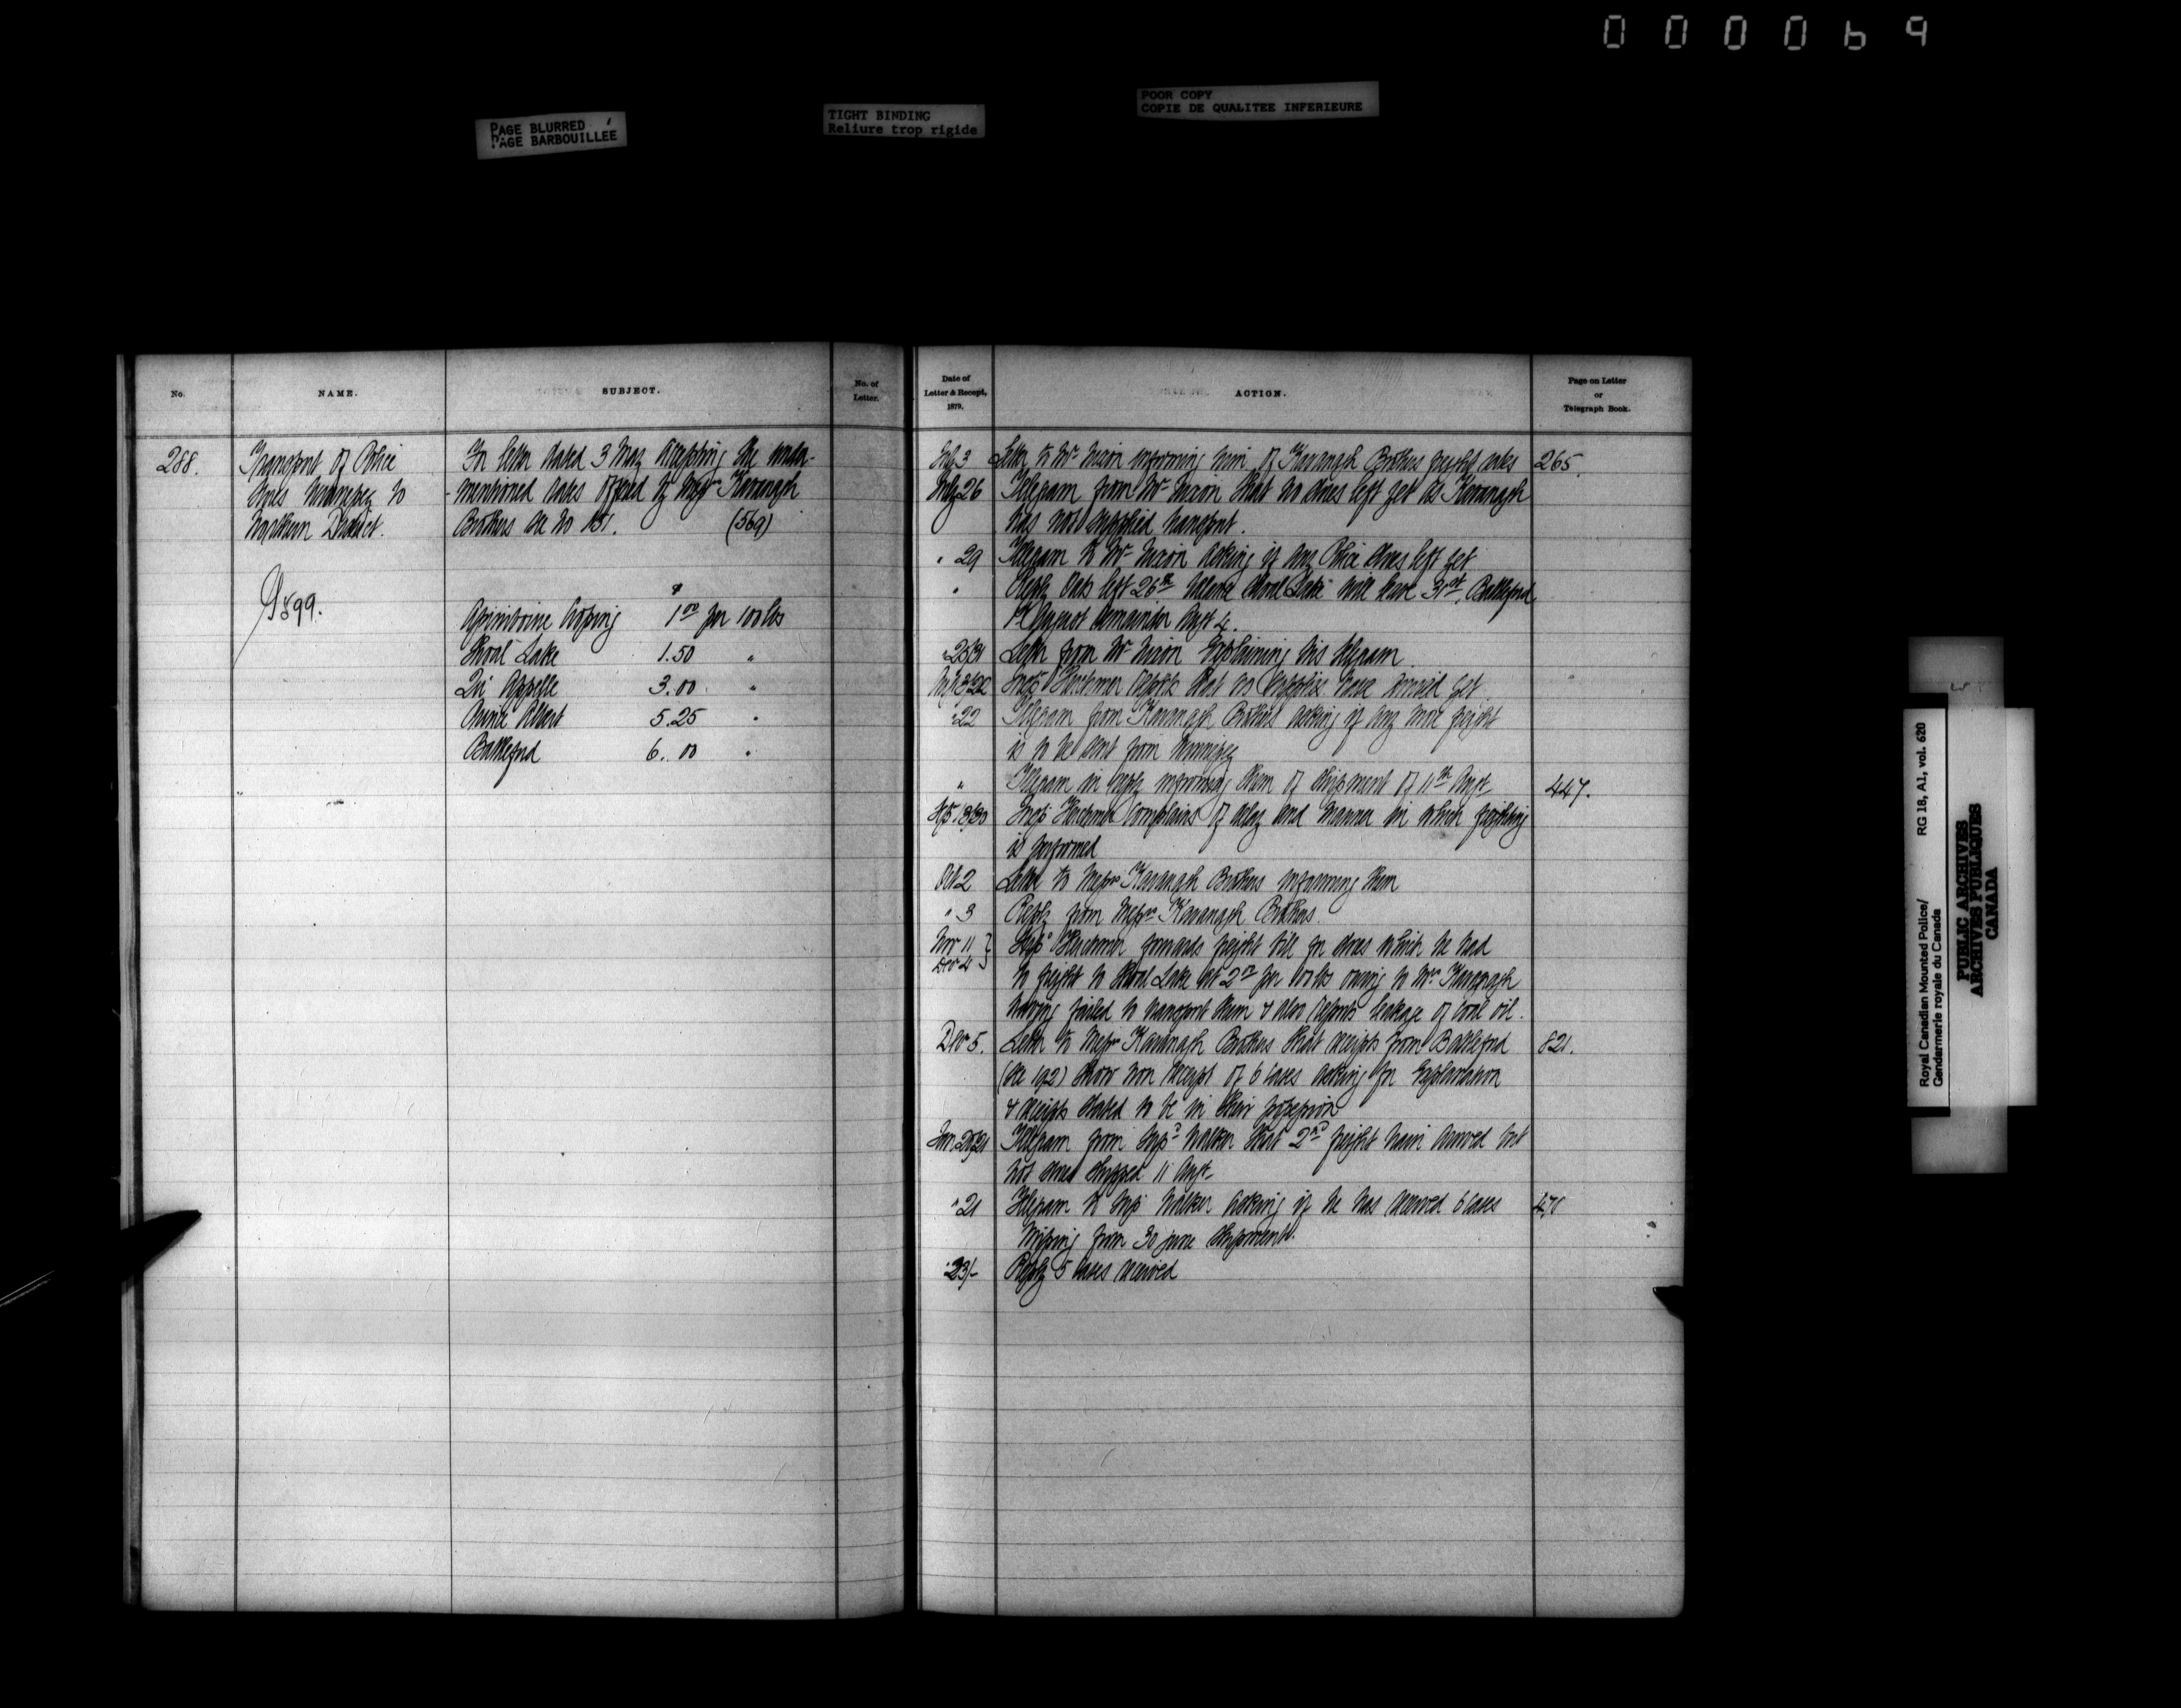 000069
PAGE BLURRED
PAGE BARBOUILLEE
TIGHT BINDING
Reliure trop rigide
POOR COPY
COPIE DE QUALITEE INFERIEURE
No.
NAME.
SUBJECT.
No. of
Letter.
288.
Transport of Police
Stores Winnipeg to
Northern District.
9899.
For letter dated 3 May accepting the under-
-mentioned rates offered by Messrs Kavanagh
Brothers see No 151. (569)
$
Assiniboine Crossing 1.00 per 100 lbs
Shoal Lake 1.50 "
Qu' Appelle 3.00 "
Prince Albert 5.25 "
Battleford 6.00 "
Date of
Letter & Receipt,
1879.
ACTION.
Page on Letter
or
Telegraph Book.
July 3 Letter to Mr Nixon informing him of Kavanagh Brothers freight rates 265.
July 26 Telegram from Mr Nixon that no stores left yet as Kavanagh
has not supplied transport.
" 29 Telegram to Mr Nixon asking if any Police Stores left yet
" Reply Oats left 26th Shoal Lake will leave 31st, Battleford
1st August remainder Augt 4.
" 25/31 Letter from Mr Nixon Explaining his telegram
Inspr Herchmer reports that no supplies have arrived yet
" 22 Telegram from Kavanagh Brothers asking if any more freight
is to be sent from Winnipeg
" Telegram in reply informing them of shipment of 11th Augt 447.
Sept 18/30 Inspr Herchmer complains of delay and manner in which freighting
is performed
Oct 2 Letter to Messrs Kavanagh Brothers informing them
" 3 Reply from Messrs Kavanagh Brothers.
Nov 11 Inspr Herchmer forwards freight bill for stores which he had
Dec 4 to freight to Shoal Lake at 2.00 per 100 lbs owing to Mr Kavanagh
having failed to transport them & also reports leakage of coal oil.
Dec 5. Letter to Messrs Kavanagh Brothers that receipts from Battleford 821.
(see 192) show non receipt of 6 cases asking for Explanation
& receipts stated to be in their possession
Jan 20/21 Telegram from Inspr Walker that 2nd freight train arrived but
not stores shipped 11 Augt
" 21 Telegram to Inspr Walker asking if he has received 6 cases
missing from 30 June shipment.
" 23/- Reply 5 cases received
Royal Canadian Mounted Police/ RG 18, A1, vol. 620
Gendarmerie royale du Canada
PUBLIC ARCHIVES
ARCHIVES PUBLIQUES
CANADA